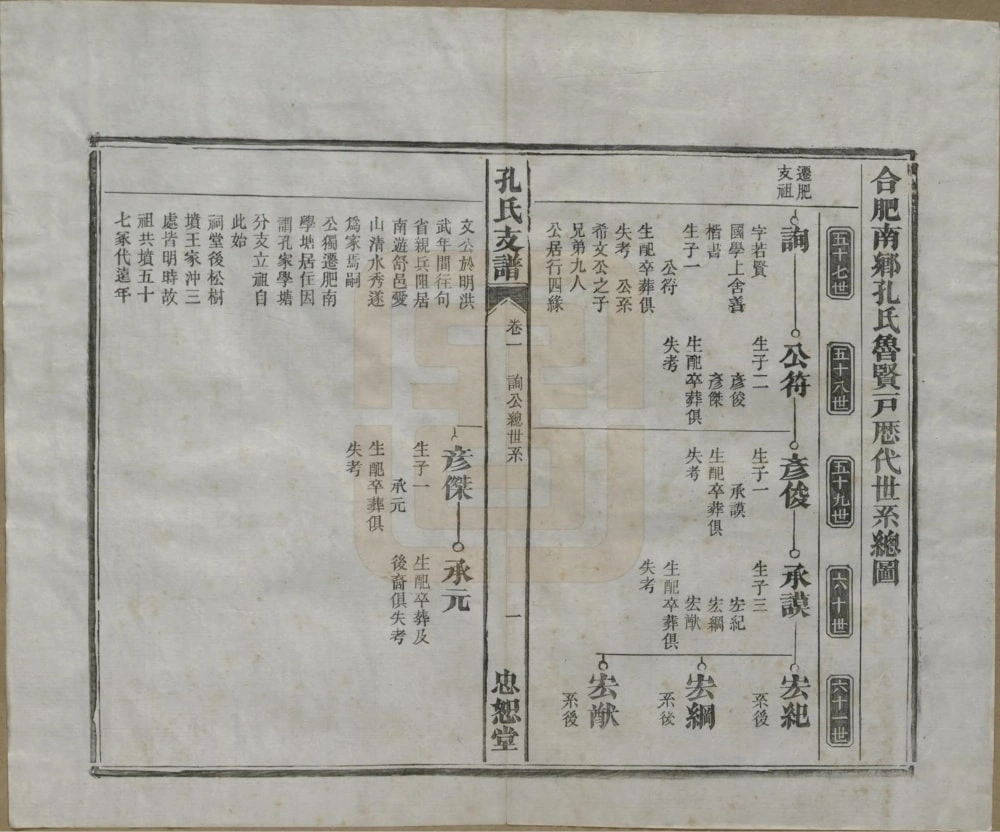 合肥南鄉孔氏魯賢戶歴代世系總圖
五十七世
五十八世
五十九世
六十世
六十一世
遷肥
支祖
詢
字若賢
國學上舍善
楷書
生子一
公符
生配卒葬俱
失考　公系
希文公之子
兄弟九人
公居行四緣
公符
生子二
彥俊
彥傑
生配卒葬俱
失考
彥俊
生子一
承謨
生配卒葬俱
失考
承謨
生子三
宏紀
宏綱
宏猷
生配卒葬俱
失考
宏紀
系後
宏綱
系後
宏猷
系後
孔氏支譜
卷一
詢公總世系
一
忠恕堂
文公於明洪
武年間往句
省親兵阻居
南遊舒邑愛
山清水秀遂
爲家焉嗣
公獨遷肥南
學塘居住因
謂孔家學塘
分支立祖自
此始
祠堂後松樹
墳王家沖三
處皆明時故
祖共墳五十
七冢代遠年
彥傑
生子一
承元
生配卒葬俱
失考
承元
生配卒葬及
後裔俱失考